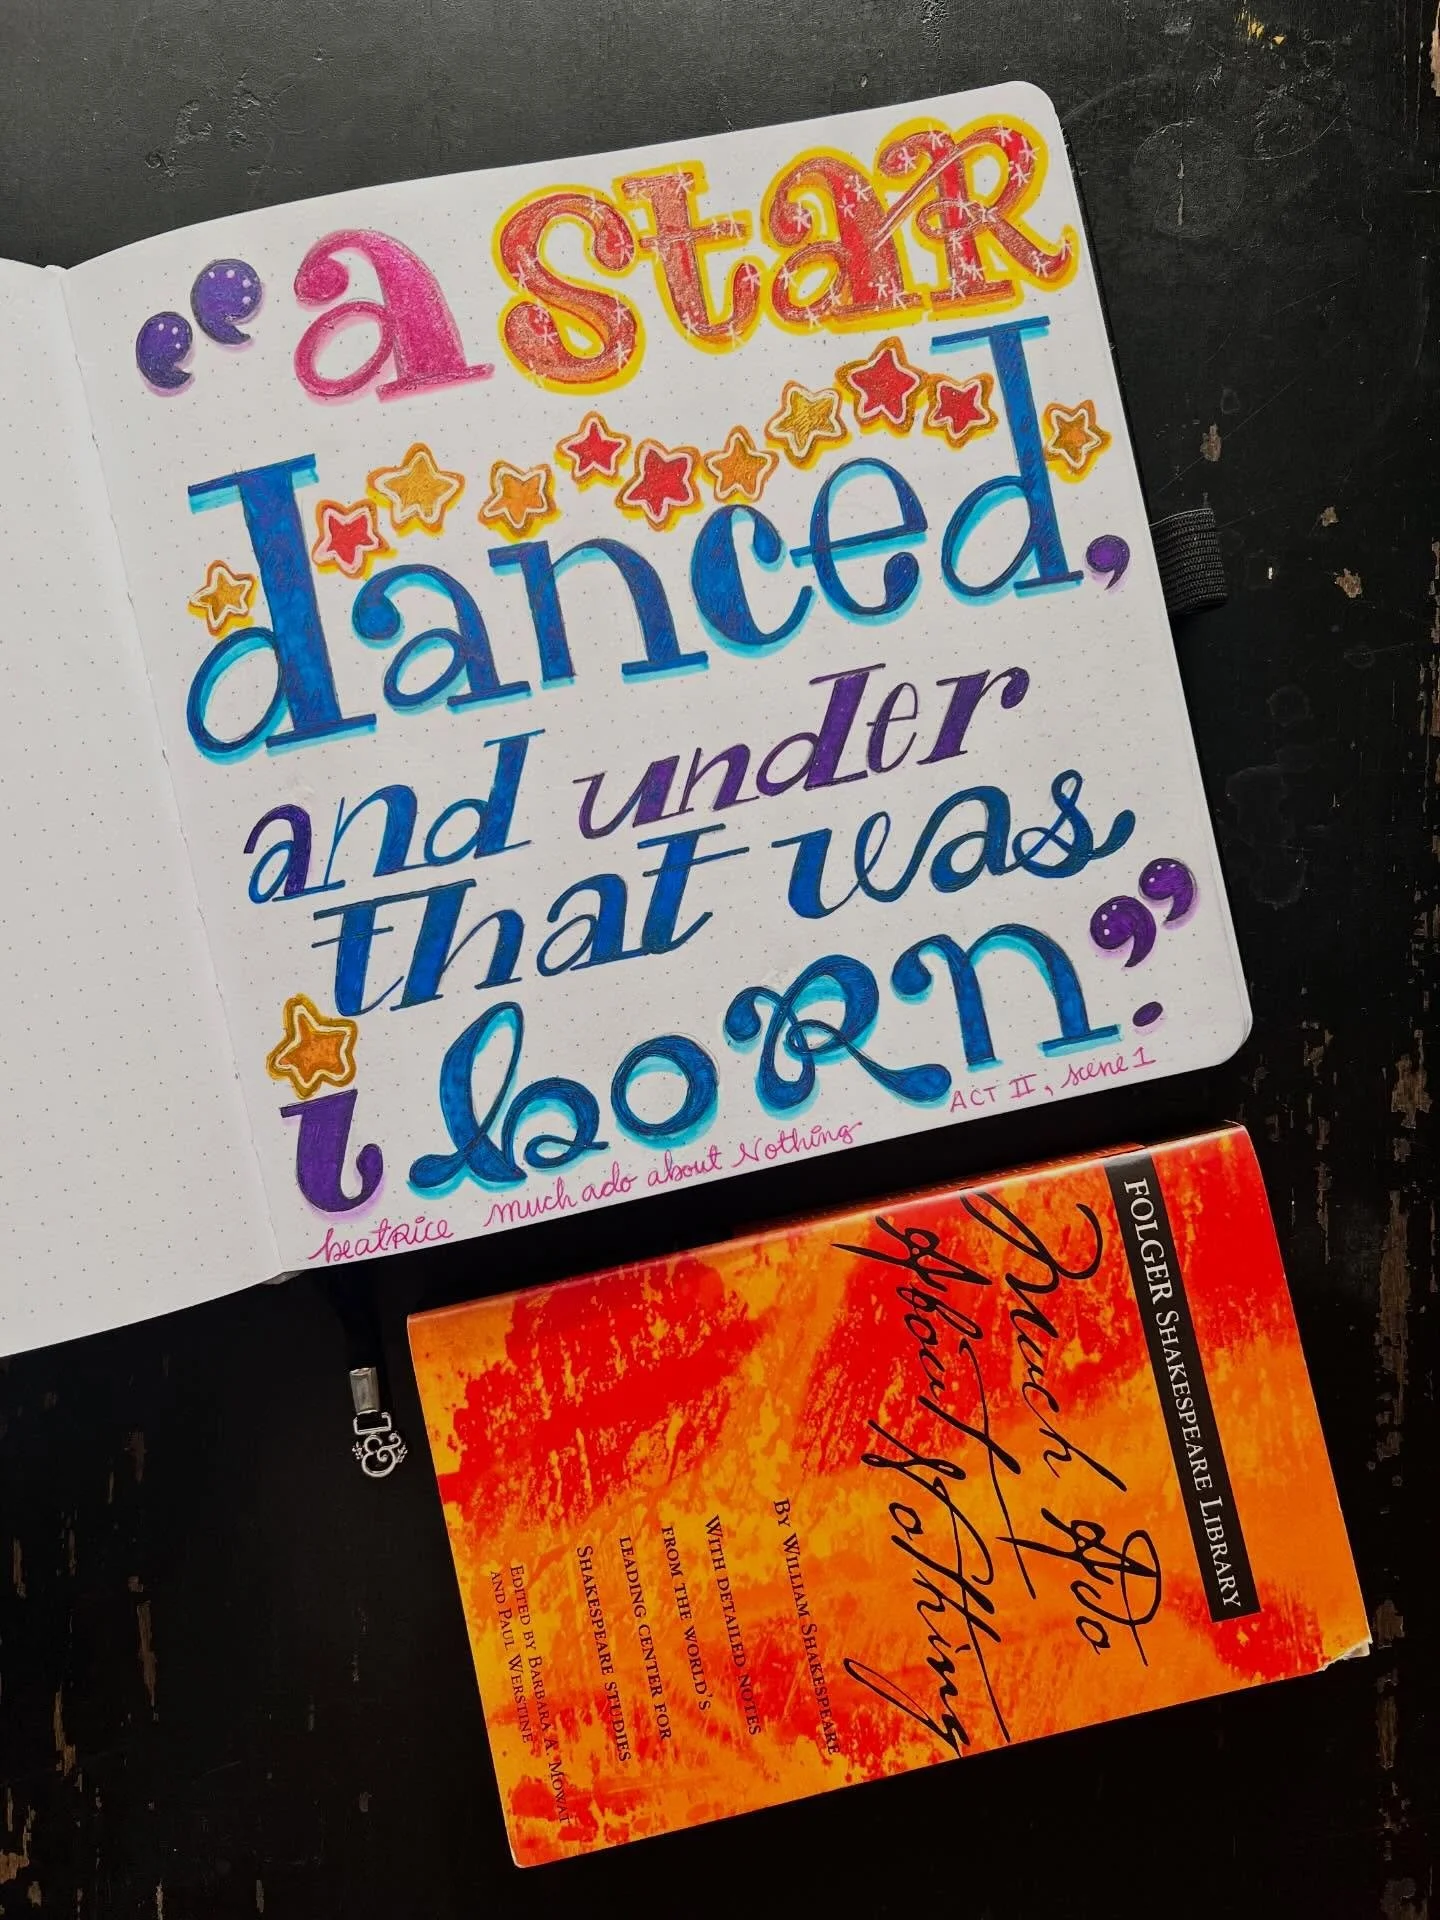 “a star
danced,
and under
that was
i born.”
beatrice much ado about Nothing ACT II, scene 1
FOLGER SHAKESPEARE LIBRARY
Much Ado
About Nothing
BY WILLIAM SHAKESPEARE
WITH DETAILED NOTES
FROM THE WORLD'S
LEADING CENTER FOR
SHAKESPEARE STUDIES
EDITED BY BARBARA A. MOWAT
AND PAUL WERSTINE